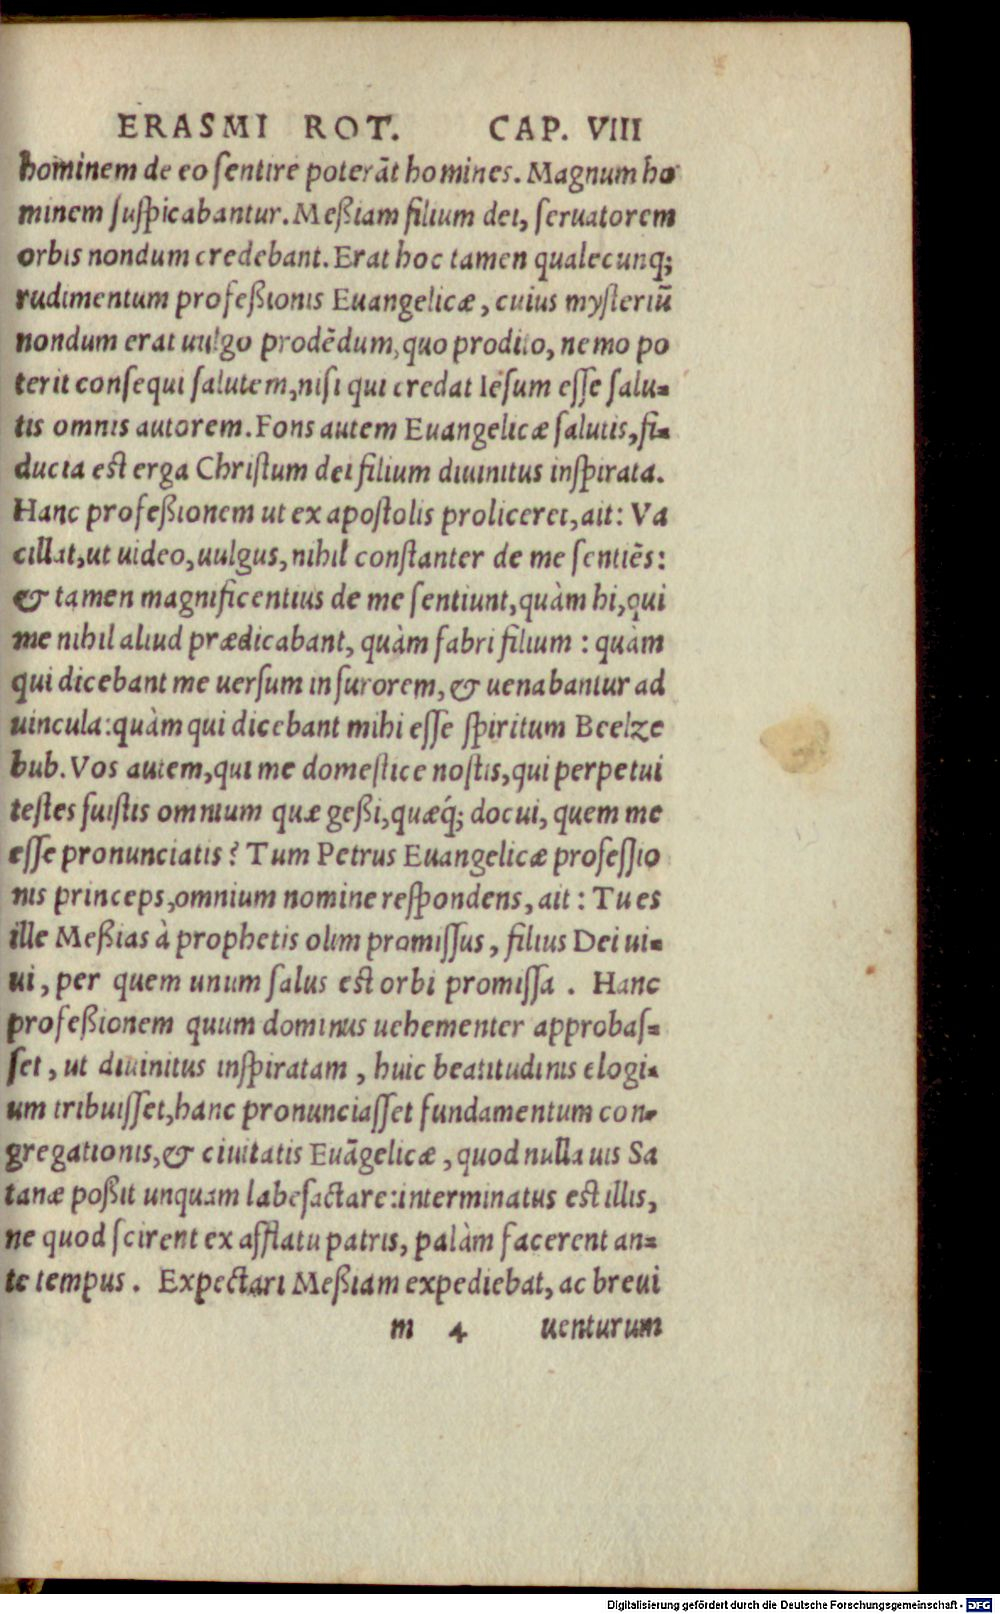 ERASMI ROT. CAP. VIII
hominem de eo ſentire poterāt homines. Magnum ho
minem ſuſpicabantur. Meßiam filium dei, ſeruatorem
orbis nondum credebant. Erat hoc tamen qualecunq;
rudimentum profeßionis Euangelicæ, cuius myſteriū
nondum erat uulgo prodēdum, quo prodito, nemo po
terit conſequi ſalutem, niſi qui credat Ieſum eſſe ſalu-
tis omnis autorem. Fons autem Euangelicæ ſalutis, fi-
ducia est erga Chriſtum dei filium diuinitus inſpirata.
Hanc profeßionem ut ex apoſtolis proliceret, ait: Va
cillat, ut uideo, uulgus, nihil conſtanter de me ſentiēs:
& tamen magnificentius de me ſentiunt, quàm hi, qui
me nihil aliud prædicabant, quàm fabri filium : quàm
qui dicebant me uerſum in furorem, & uenabantur ad
uincula: quàm qui dicebant mihi eſſe ſpiritum Beelze
bub. Vos autem, qui me domeſtice noſtis, qui perpetui
teſtes fuiſtis omnium quæ geßi, quæq́; docui, quem me
eſſe pronunciatis? Tum Petrus Euangelicæ profeſſio
nis princeps, omnium nomine reſpondens, ait : Tu es
ille Meßias à prophetis olim promiſſus, filius Dei ui-
ui, per quem unum ſalus est orbi promiſſa . Hanc
profeßionem quum dominus uehementer approbaſ-
ſet, ut diuinitus inſpiratam, huic beatitudinis elogi-
um tribuiſſet, hanc pronunciaſſet fundamentum con-
gregationis, & ciuitatis Euāgelicæ, quod nulla uis Sa
tanæ poßit unquam labefactare: interminatus est illis,
ne quod ſcirent ex afflatu patris, palàm facerent an-
te tempus. Expectari Meßiam expediebat, ac breui
m 4 uenturum
Digitalisierung gefördert durch die Deutsche Forschungsgemeinschaft - DFG